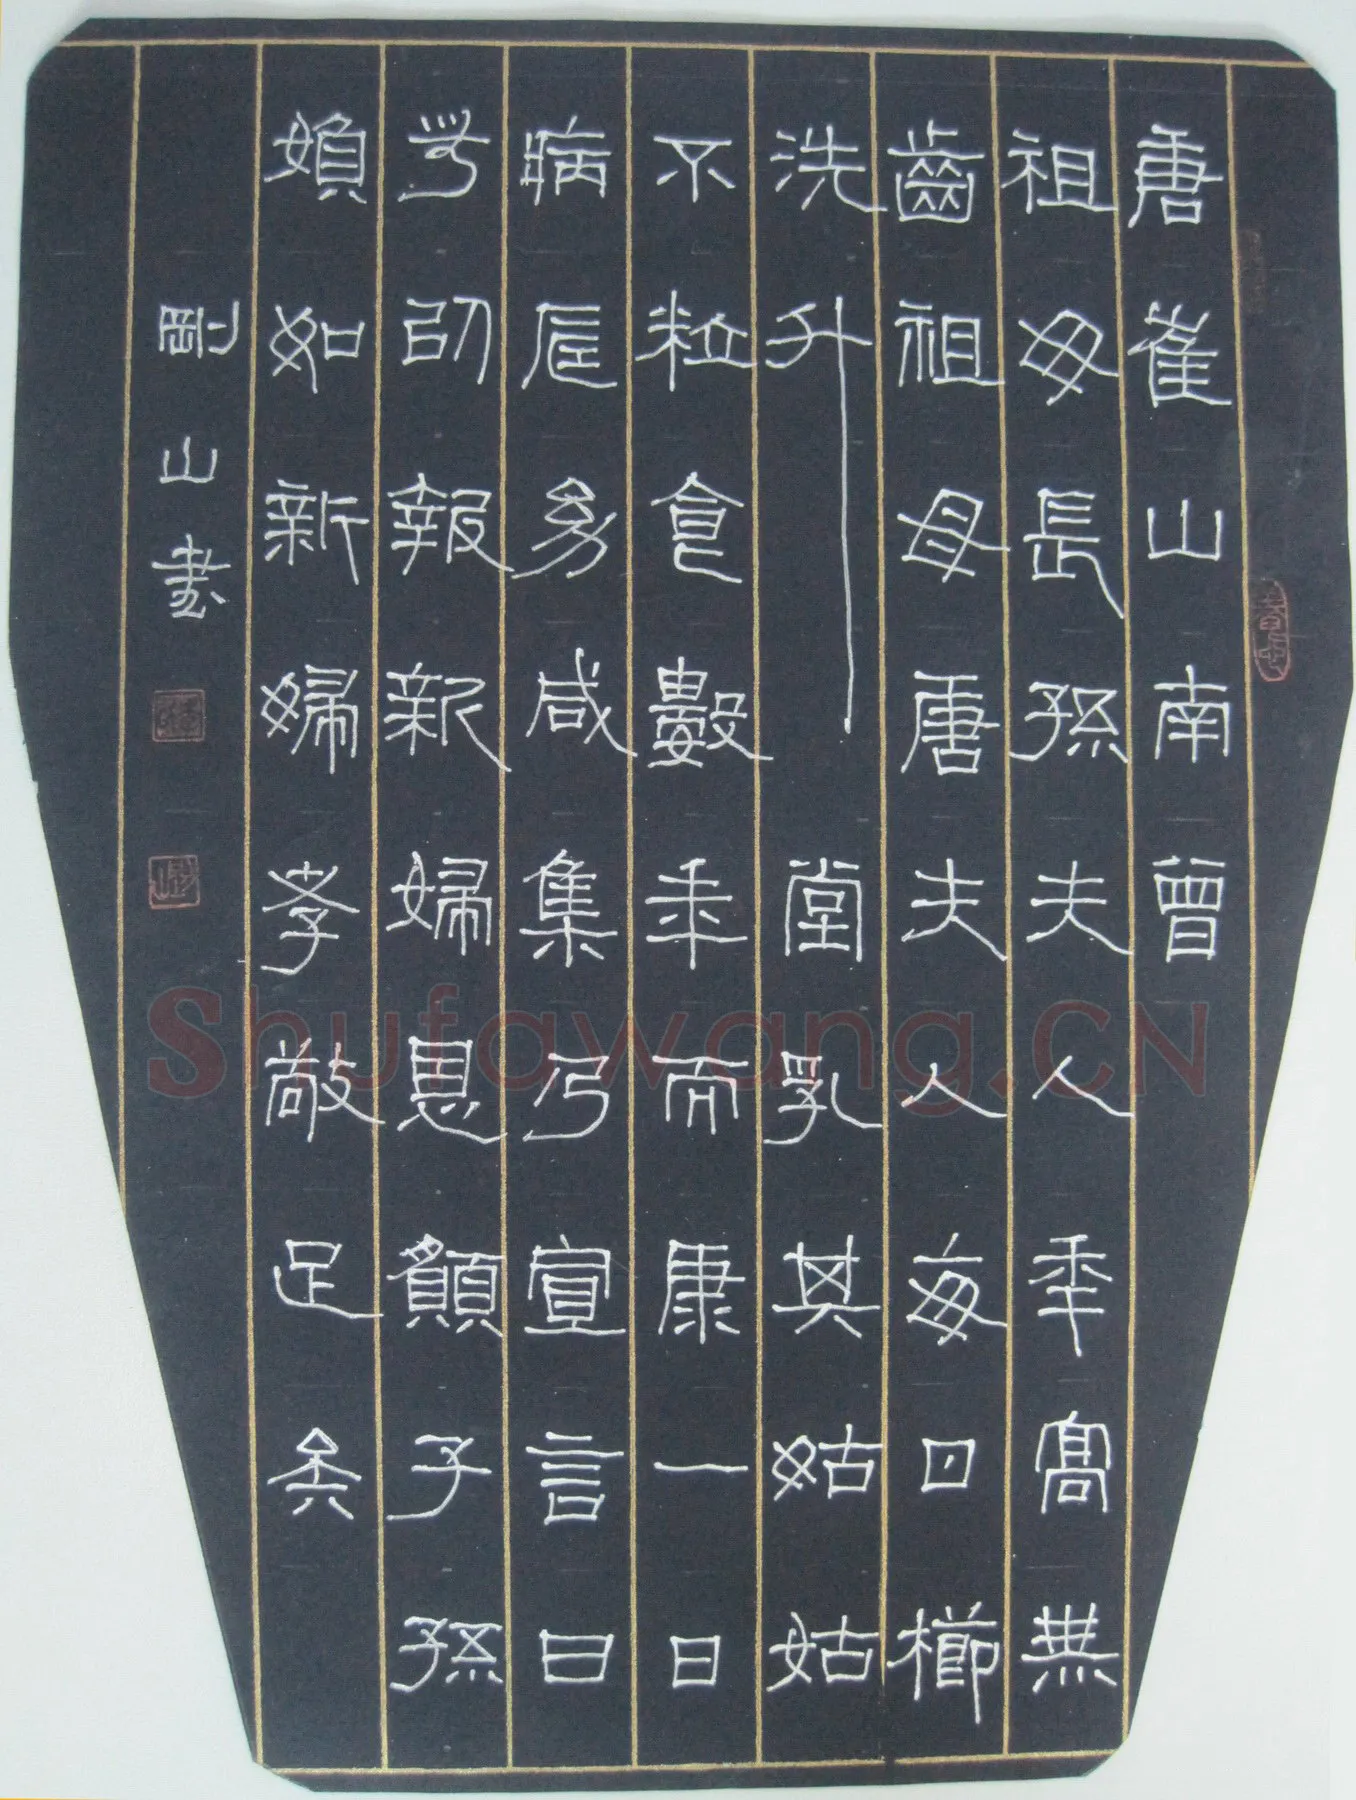 唐崔山南曾
祖母長孫夫人年高無
齒祖母唐夫人每日櫛
洗升堂乳其姑姑
不粒食數年而康一日
病長幼咸集乃宣言曰
無以報新婦恩願子孫
婦如新婦孝敬足矣
剛山書
Shufawang.CN